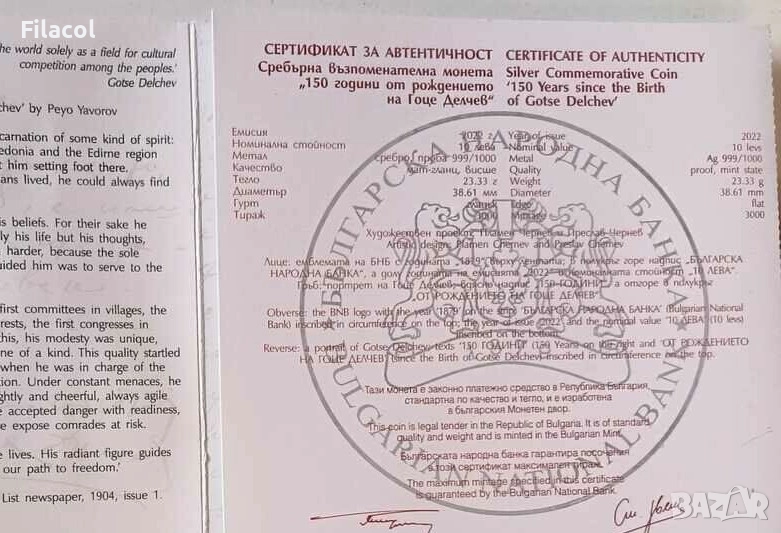 Filacol
he world solely as a field for cultural
competition among the peoples.'
Gotse Delchev
chev' by Peyo Yavorov
carnation of some kind of spirit:
edonia and the Edirne region
t him setting foot there.
ans lived, he could always find
is beliefs. For their sake he
ly his life but his thoughts,
harder, because the sole
uided him was to serve to the
first committees in villages, the
rests, the first congresses in
this, his modesty was unique,
ne of a kind. This quality startled
when he was in charge of the
tion. Under constant menaces, he
ghtly and cheerful, always agile
e accepted danger with readiness,
e expose comrades at risk.
e lives. His radiant figure guides
our path to freedom.'
List newspaper, 1904, issue 1.
СЕРТИФИКАТ ЗА АВТЕНТИЧНОСТ
Сребърна възпоменателна монета
„150 години от рождението
на Гоце Делчев“
CERTIFICATE OF AUTHENTICITY
Silver Commemorative Coin
'150 Years since the Birth
of Gotse Delchev'
Емисия 2022 г.
Номинална стойност 10 лева
Метал сребро, проба 999/1000
Качество мат-гланц, висше
Тегло 23.33 г
Диаметър 38.61 мм
Гурт гладък
Тираж 3000
Year of issue 2022
Nominal value 10 levs
Metal Ag 999/1000
Quality proof, mint state
Weight 23.33 g
Diameter 38.61 mm
Edge flat
Mintage 3000
Художествен проект: Пламен Чернев и Преслав Чернев
Artistic design: Plamen Chernev and Preslav Chernev
Лице: емблемата на БНБ с годината "1879" върху лентата; в полукръг горе надпис „БЪЛГАРСКА
НАРОДНА БАНКА“, а долу годината на емисията „2022“ и номиналната стойност "10 ЛЕВА".
Гръб: портрет на Гоце Делчев, вдясно надпис "150 ГОДИНИ", а отгоре в полукръг
„ОТ РОЖДЕНИЕТО НА ГОЦЕ ДЕЛЧЕВ“
Obverse: the BNB logo with the year '1879' on the strip; 'БЪЛГАРСКА НАРОДНА БАНКА' (Bulgarian National
Bank) inscribed in circumference on the top; the year of issue '2022' and the nominal value '10 ЛЕВА' (10 levs)
inscribed on the bottom.
Reverse: a portrait of Gotse Delchev, texts '150 ГОДИНИ' (150 Years) on the right and 'ОТ РОЖДЕНИЕТО
НА ГОЦЕ ДЕЛЧЕВ' (since the Birth of Gotse Delchev) inscribed in circumference on the top.
Тази монета е законно платежно средство в Република България,
стандартна по качество и тегло, и е изработена
в българския Монетен двор.
This coin is legal tender in the Republic of Bulgaria. It is of standard
quality and weight and is minted in the Bulgarian Mint.
Българската народна банка гарантира посочения
в този сертификат максимален тираж.
The maximum mintage specified in this certificate
is guaranteed by the Bulgarian National Bank.
БЪЛГАРСКА НАРОДНА БАНКА
BULGARIAN NATIONAL BANK
BAZAR